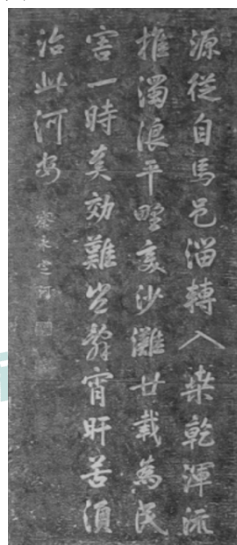 源從自馬邑溜轉入桒乾渾流
推濁浪平野変沙灘廿載為民
害一時奏効難豈辤宵旰苦須
治此河安 察永定河